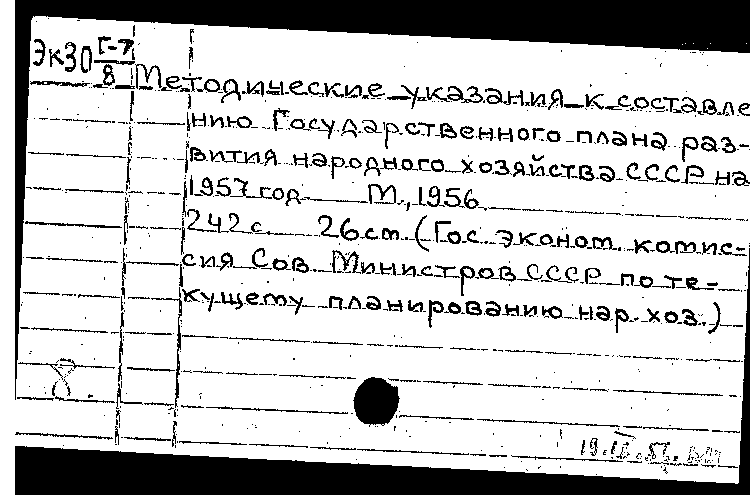 Эк30 Г-7
8
Методические указания к составле
нию Государственного плана раз-
вития народного хозяйства СССР на
1957 год М., 1956
242 с. 26 см. (Гос. эконом. комис-
сия Сов. Министров СССР по те-
кущему планированию нар. хоз.)
8.